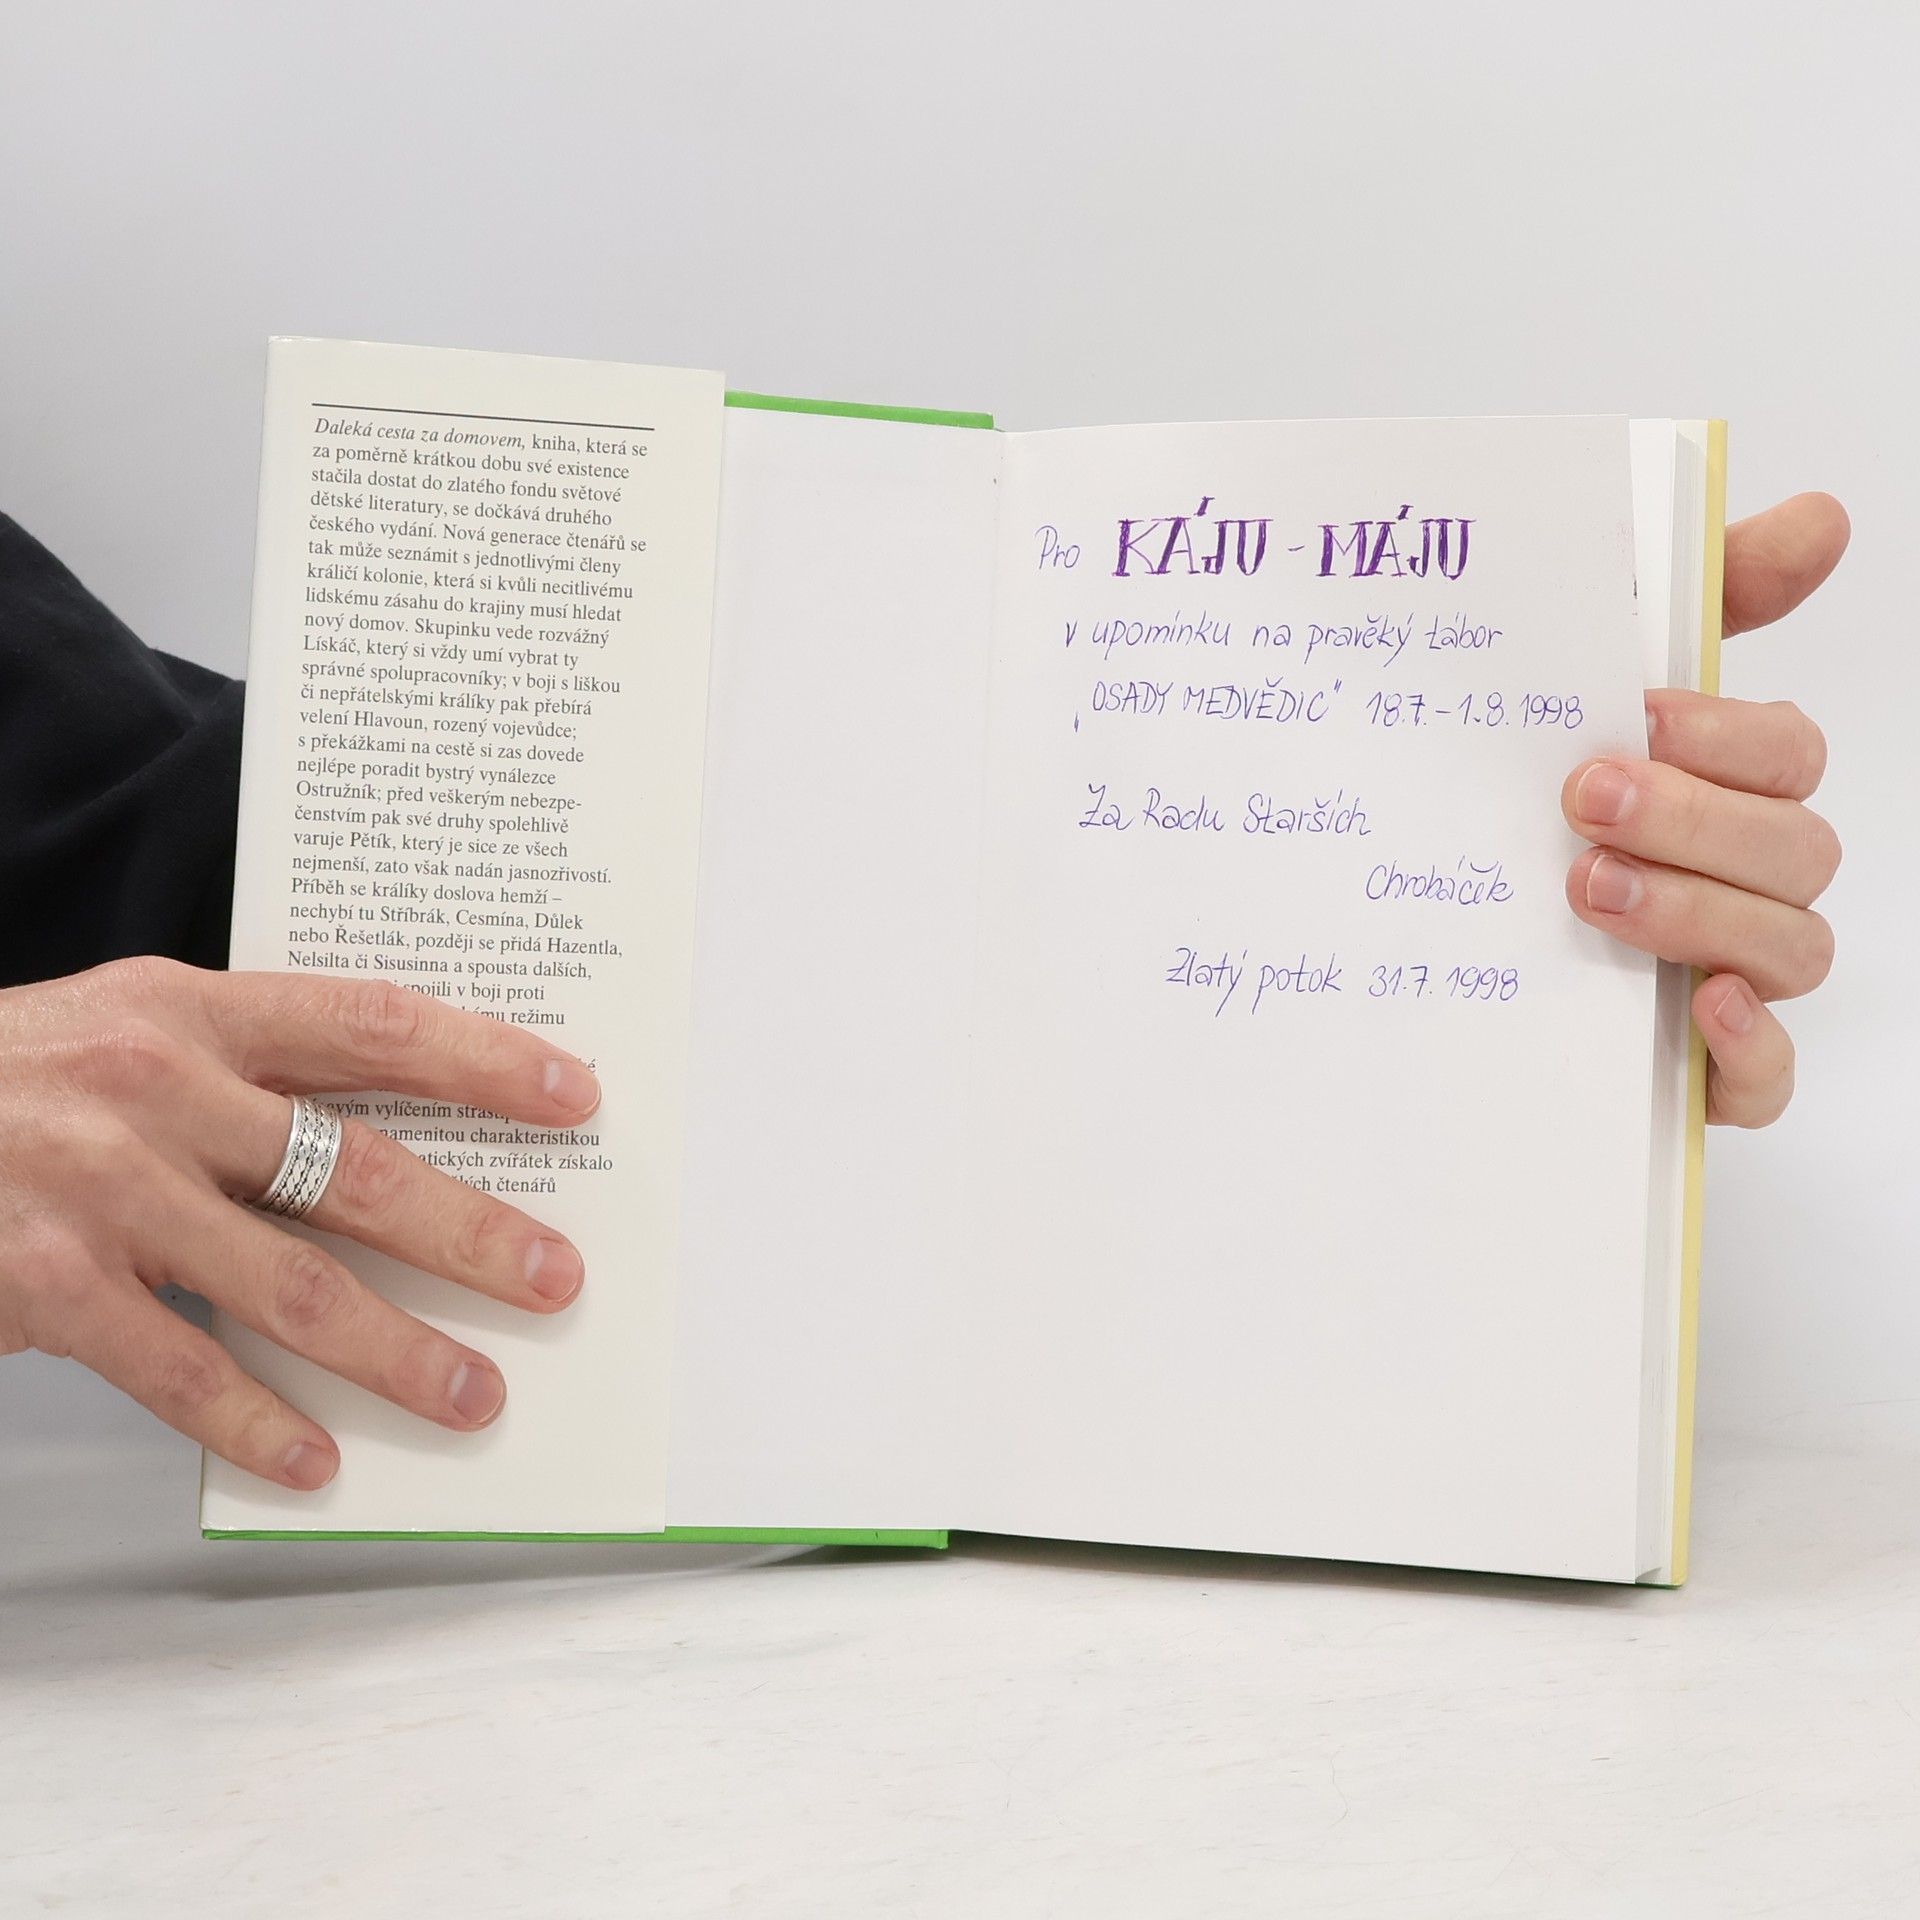 Daleká cesta za domovem, kniha, která se
za poměrně krátkou dobu své existence
stačila dostat do zlatého fondu světové
dětské literatury, se dočkává druhého
českého vydání. Nová generace čtenářů se
tak může seznámit s jednotlivými členy
králičí kolonie, která si kvůli necitlivému
lidskému zásahu do krajiny musí hledat
nový domov. Skupinku vede rozvážný
Lískáč, který si vždy umí vybrat ty
správné spolupracovníky; v boji s liškou
či nepřátelskými králíky pak přebírá
velení Hlavoun, rozený vojevůdce;
s překážkami na cestě si zas dovede
nejlépe poradit bystrý vynálezce
Ostružník; před veškerým nebezpe-
čenstvím pak své druhy spolehlivě
varuje Pětík, který je sice ze všech
nejmenší, zato však nadán jasnozřivostí.
Příběh se králíky doslova hemží –
nechybí tu Stříbrák, Cesmína, Důlek
nebo Řešetlák, později se přidá Hazentla,
Nelsilta či Sisusinna a spousta dalších,
spojili v boji proti
režimu
vylíčením
charakteristikou
zvířátek získalo
čtenářů
Pro KÁJU - MÁJU
v upomínku na pravěký tábor
„OSADY MEDVĚDIC" 18.7. - 1.8. 1998
Za Radu Starších
Chrobáček
Zlatý potok 31.7. 1998